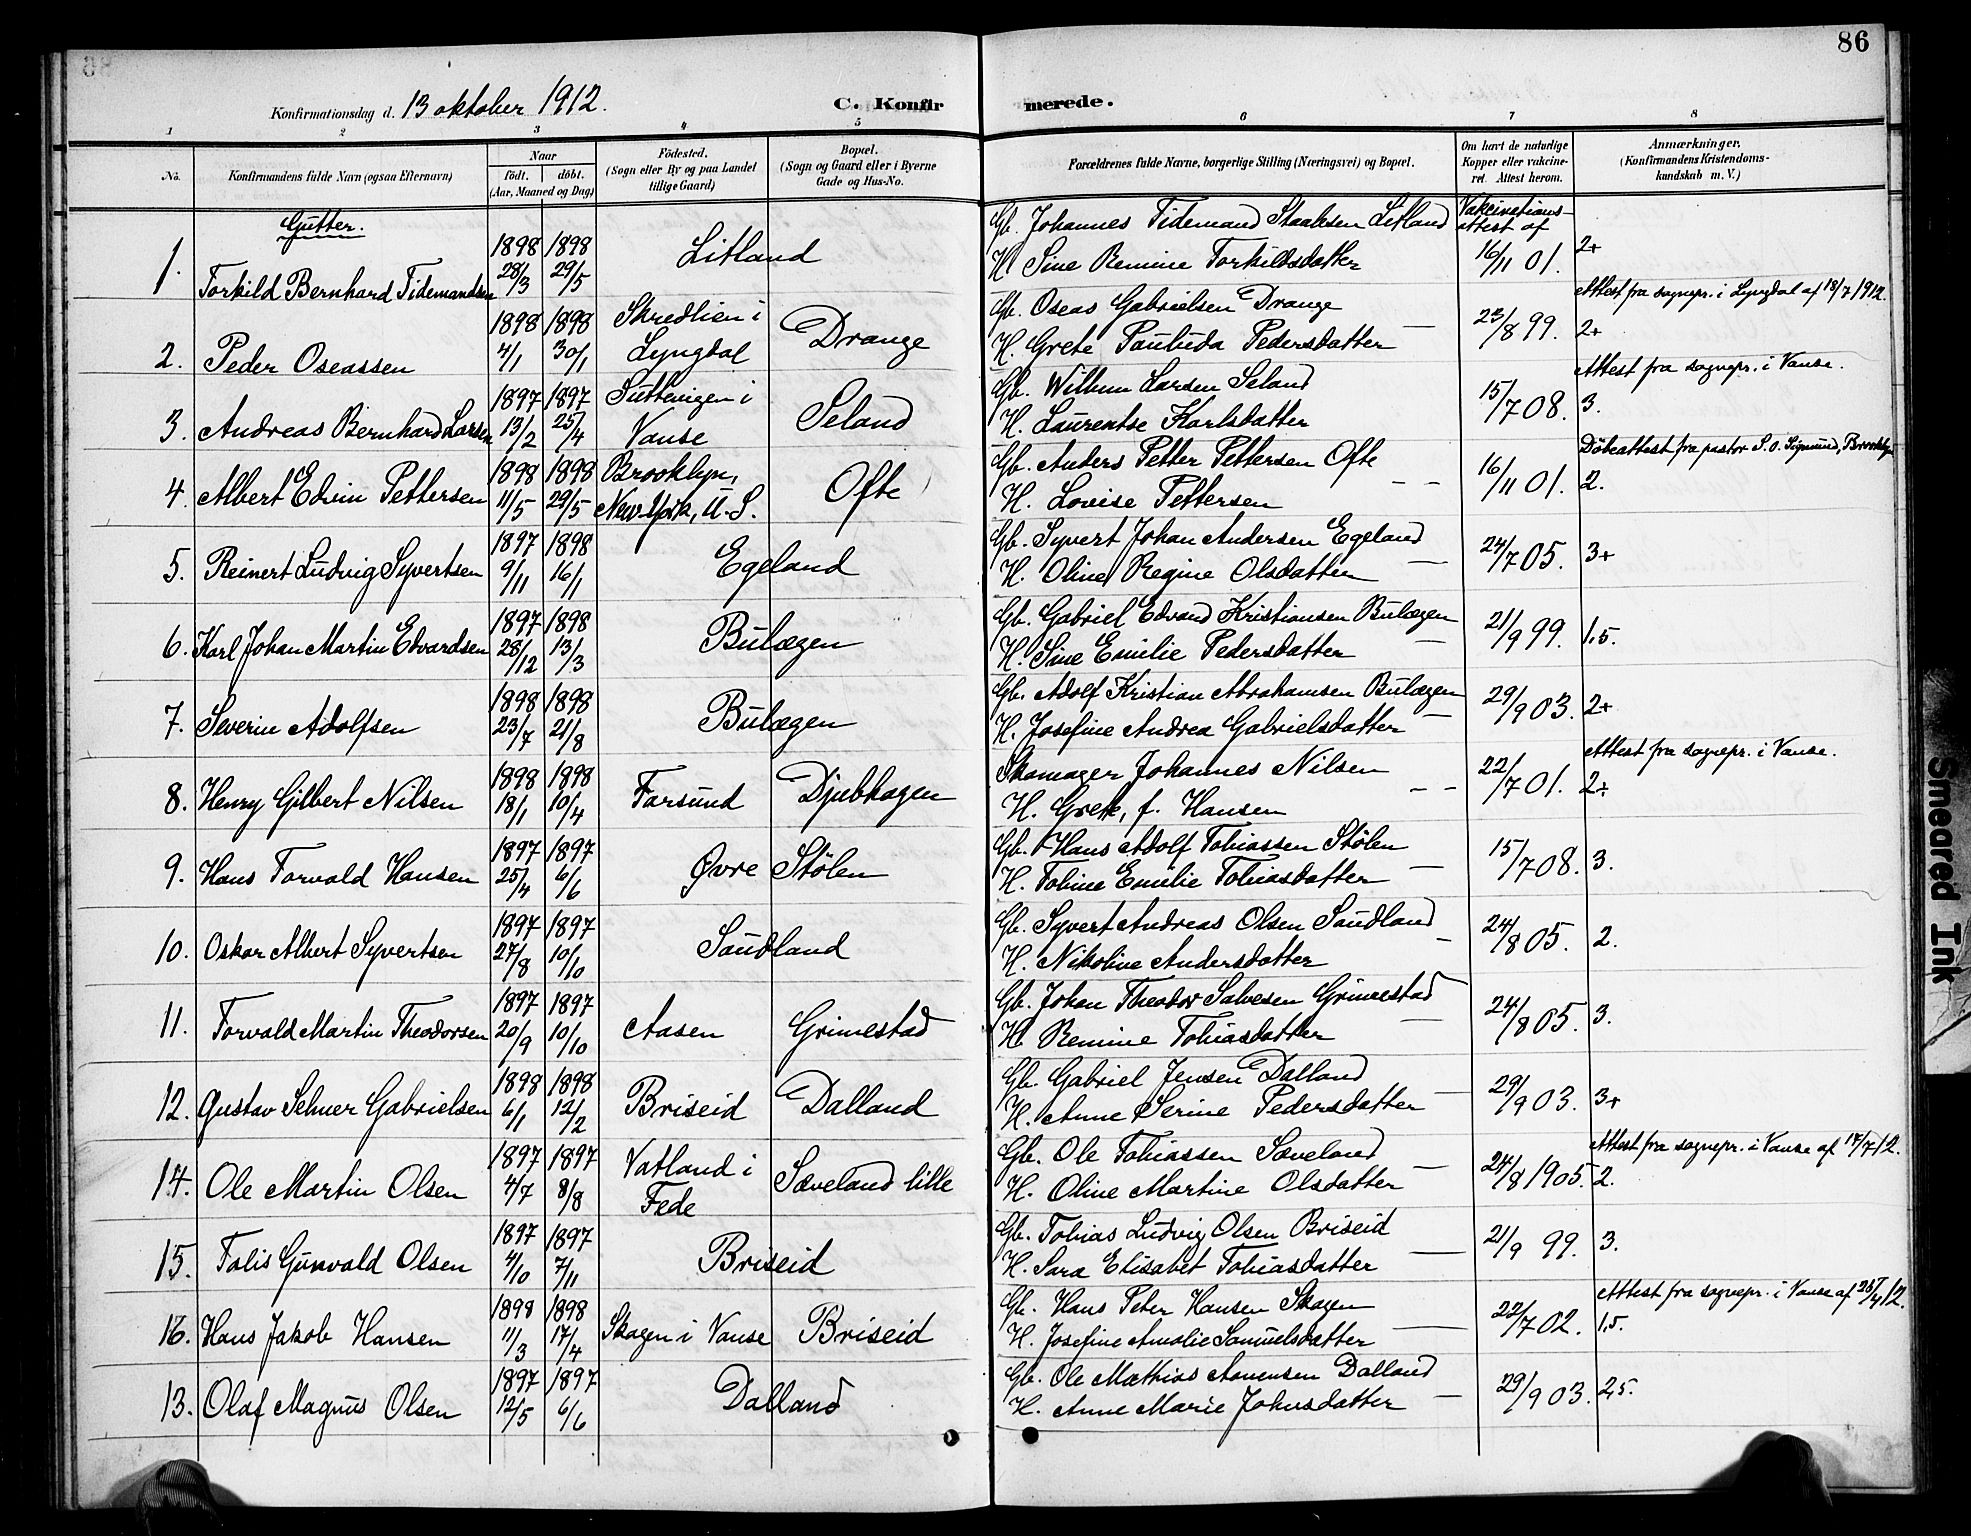 86
Konfirmationsdag d. 13 oktober 1912.
C. Konfirmerede.
1 2 3 4 5 6 7 8
No. Konfirmandens fulde Navn (ogsaa Efternavn) Naar født. døbt. (Aar, Maaned og Dag) Fødested. (Sogn eller By og paa Landet tillige Gaard) Bopæl. (Sogn og Gaard eller i Byerne Gade og Hus-No. Forældrenes fulde Navne, borgerlige Stilling (Næringsvei) og Bopæl. Om havt de naturlige Kopper eller vakcineret. Attest herom. Anmærkninger. (Konfirmandens Kristendomskundskab m. V.)
Gutter.
1. Torkild Bernhard Tidemandsen 1898 28/3 1898 29/5 Litland
Gb. Johannes Tidemand Staalesen Litland
H. Sine Remine Torkildsdatter
Vakcinations-
attest af
16/11 01. 2+
2. Peder Oseassen 1898 4/1 1898 30/1 Skredlien i Lyngdal Drange
Gb. Oseas Gabrielsen Drange
H. Grete Paulida Pedersdatter — 23/8 99. 2+
Attest fra sognepr. i Lyngdal af 18/7 1912.
3. Andreas Bernhard Larsen 1897 13/2 1897 25/4 Vanse Seland
Gb. Wilhum Larsen Seland
H. Laurentse Karlsdatter 15/7 08. 3.
Attest fra sognepr. i Vanse.
4. Albert Edvin Pettersen 1898 11/5 1898 29/5 Brooklyn, New York, U.S. Ofte
Gb. Anders Petter Pettersen Ofte
H. Lovise Pettersen — — 16/11 01. 2.
Døbeattest fra pastor S. O. Sigmund, Brooklyn
5. Reinert Ludvig Syvertsen 1897 9/11 1898 16/1 Egeland
Gb. Syvert Johan Andersen Egeland
H. Oline Regine Olsdatter — 24/7 05. 3+
6. Karl Johan Martin Edvardsen 1897 28/12 1898 13/3 Bulægen
Gb. Gabriel Edvard Kristiansen Bulægen
H. Sine Emilie Pedersdatter — 21/9 99. 1,5.
7. Severin Adolfsen 1898 23/7 1898 21/8 Bulægen
Gb. Adolf Kristian Abrahamsen Bulægen
H. Josefine Andrea Gabrielsdatter — 29/9 03. 2+
8. Henry Gilbert Nilsen 1898 18/1 1898 10/4 Farsund Djubhagen
Skomager Johannes Nilsen
H. Grete, f. Hansen — — 22/7 01. 2+
Attest fra sognepr. i Vanse.
9. Hans Torvald Hansen 1897 25/4 1897 6/6 Øvre Stølen
Gb. Hans Adolf Tobiassen Stølen
H. Tobine Emilie Tobiasdatter — 15/7 08. 3.
10. Oskar Albert Syvertsen 1897 27/8 1897 10/10 Saudland
Gb. Syvert Andreas Olsen Saudland
H. Nikoline Andersdatter — 24/8 05. 2.
11. Torvald Martin Theodorsen 1897 20/9 1897 10/10 Aasen Grimestad
Gb. Johan Theodor Salvesen Grimestad
H. Remine Tobiasdatter — 24/8 05. 3.
12. Gustav Selmer Gabrielsen 1898 6/1 1898 12/2 Briseid Dalland
Gb. Gabriel Jensen Dalland
H. Anne Serine Pedersdatter — 29/9 03. 3+
14. Ole Martin Olsen 1897 4/7 1897 8/8 Vatland i Fede Sæveland lille
Gb. Ole Tobiassen Sæveland
H. Oline Martine Olsdatter — 24/8 1905. 2.
Attest fra sognepr. i Vanse af 17/7 12.
15. Tolis Gunvald Olsen 1897 4/10 1897 7/11 Briseid
Gb. Tobias Ludvig Olsen Briseid
H. Sara Elisabet Tobiasdatter — 21/9 99. 3.
16. Hans Jakob Hansen 1898 11/3 1898 17/4 Skagen i Vanse Briseid
Gb. Hans Peter Hansen Skagen
H. Josefine Amalie Samuelsdatter — 22/7 02. 1,5.
Attest fra sognepr. i Vanse af
13. Olaf Magnus Olsen 1897 12/5 1897 6/6 Dalland
Gb. Ole Mathias Aanensen Dalland
H. Anne Marie Johnsdatter — 29/9 03. 2,5.
Smeared Ink